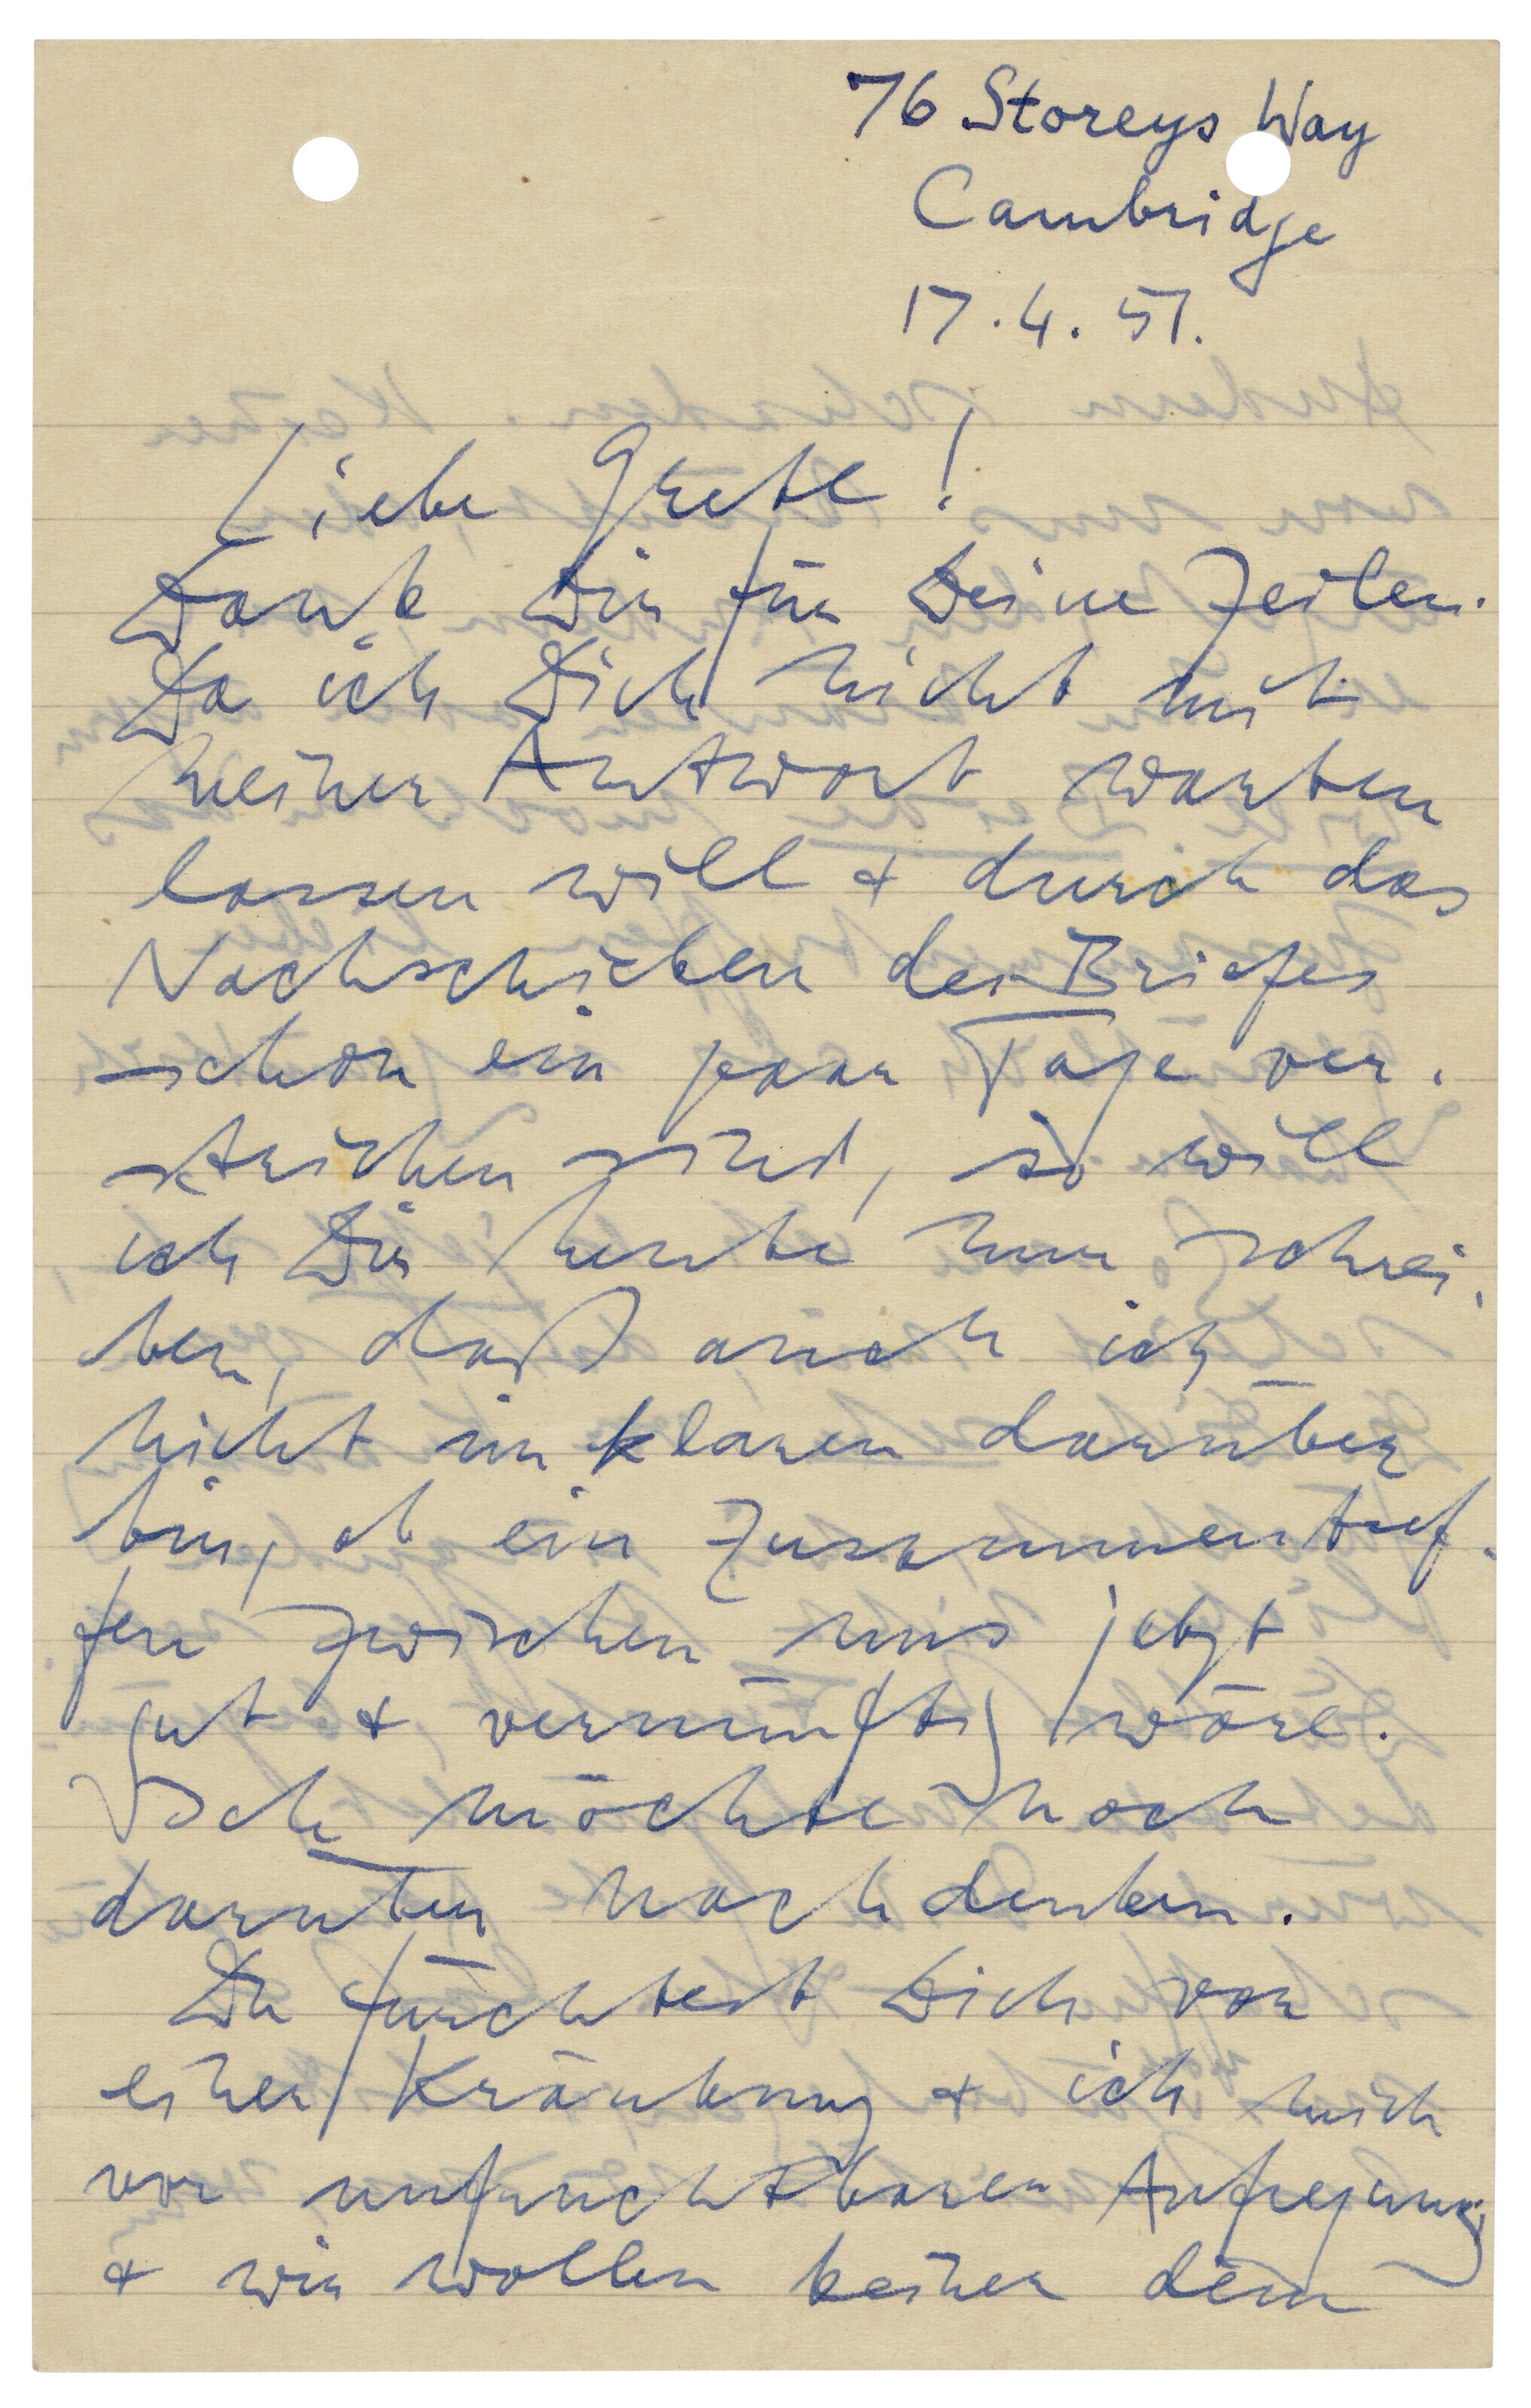 76 Storeys Way
Cambridge
17.4.51.
Liebe Grete!
Dank Dir für Deine Zeilen.
Da ich Dich nicht mit
meiner Antwort warten
lassen will + durch das
Nachschicken des Briefes
schon ein paar Tage ver-
strichen sind, so will
ich Dir heute nur schrei-
ben, daß auch ich
nicht im klaren darüber
bin, ob ein Zusammentref-
fen zwischen uns jetzt
gut + vernünftig wäre.
Ich möchte noch
darüber nachdenken.
Du fürchtest Dich vor
einer Kränkung + ich mich
vor unfruchtbarer Aufregung
+ wir wollen keiner dem